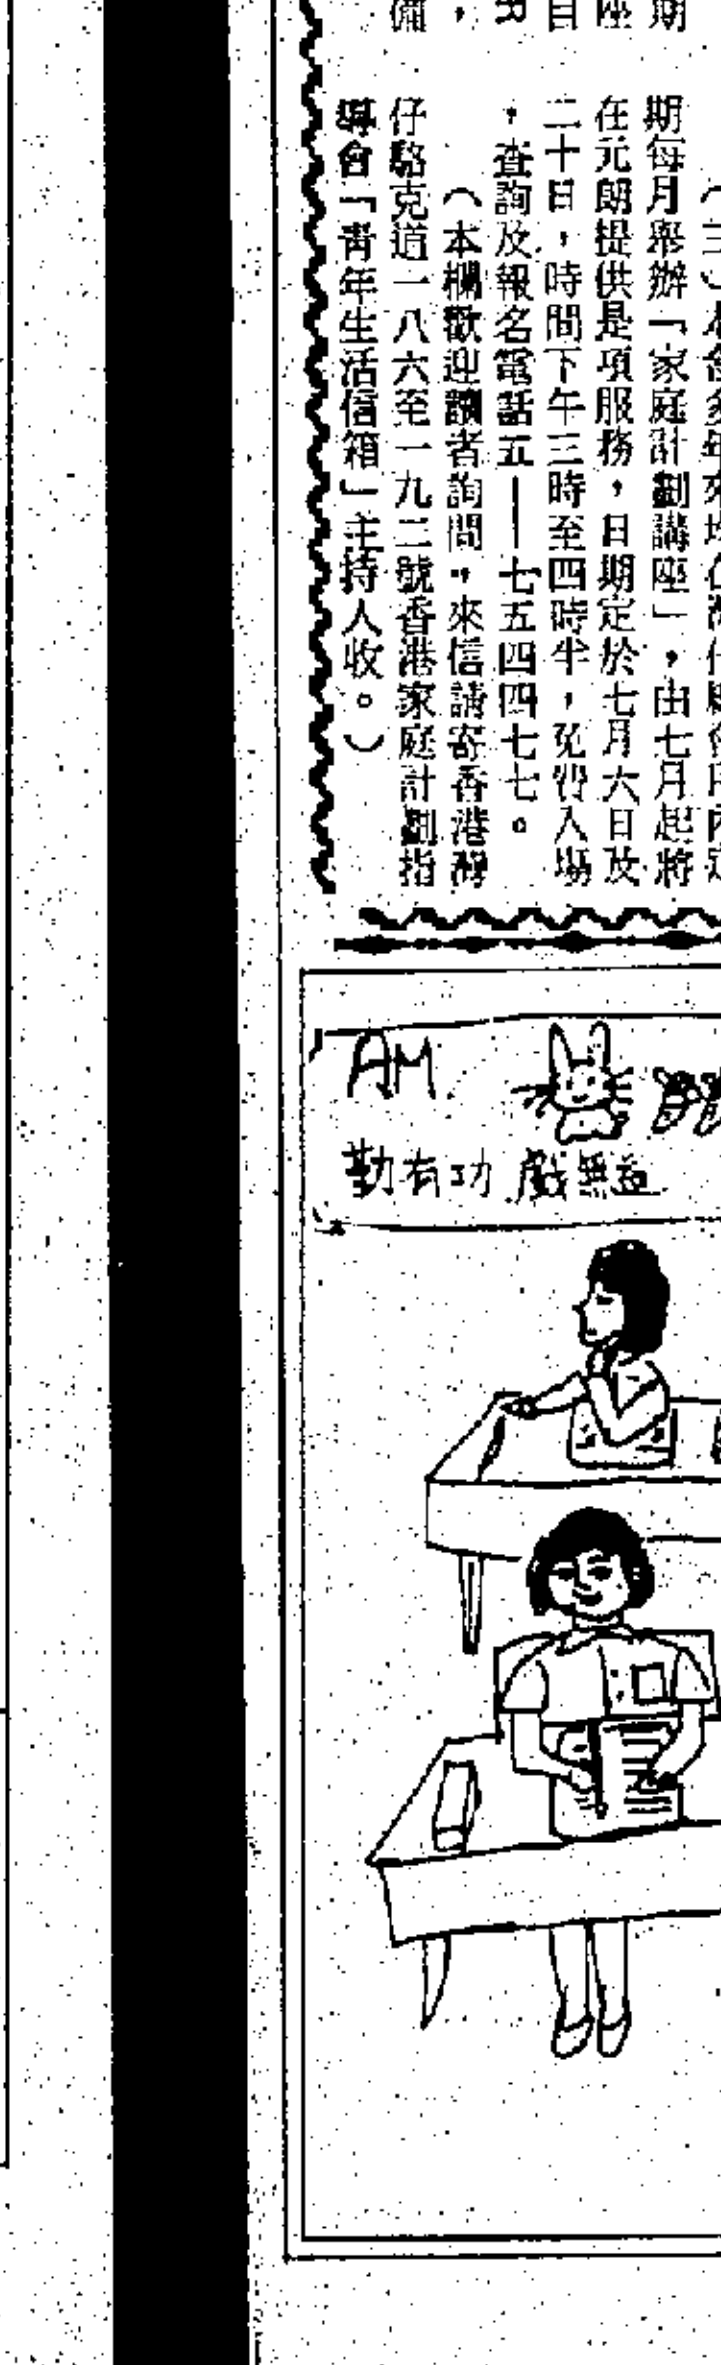 期
座
目
備
（三）本會多年來均在灣仔
期每月舉辦「家庭計劃講座」，由七月起將
在元朗提供是項服務，日期定於七月六日及
二十日，時間下午三時至四時半，免費入場
，查詢及報名電話五——七五四四七七。
（本欄歡迎讀者詢問，來信請寄香港灣
仔駱克道一八六至一九二號香港家庭計劃指
導會「青年生活信箱」主持人收。）
AM
勤有功 戲無益